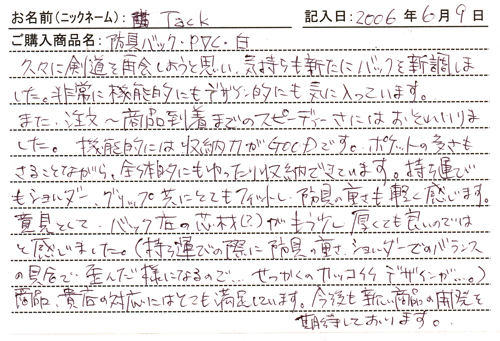 お名前(ニックネーム): Tack 記入日: 2006 年 6 月 9 日
ご購入商品名: 防具バック・PDC・白
久々に剣道を再会しようと思い、気持ちも新たにバックを新調しま
した。非常に機能的にもデザイン的にも気に入っています。
また、注文〜商品到着までのスピーディーさにはおどろいりま
した。機能的には収納力がGOODです。ポケットの多さも
さることながら、全体的にもゆったり収納できています。持ち運び
もショルダー、グリップ共にとてもフィットし、防具の重さも軽く感じます。
意見として、バック左の芯材(?)がもう少し厚くても良いのでは
と感じました。(持ち運びの際に防具の重さ、ショルダーでのバランス
の具合で歪んだ様になるので…せっかくのカッコイイデザインが…。)
商品、貴店の対応にはとても満足しています。今後も新しい商品の開発を
期待しております。